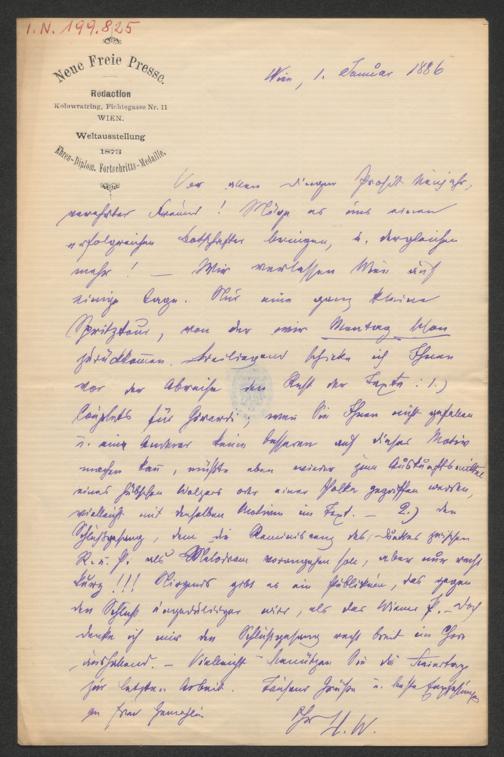 I.N. 199.825
Neue Freie Presse.
Redaction
Kolowratring, Fichtegasse Nr. 11
WIEN.
Weltausstellung
1873
Ehren-Diplom. Fortschritts-Medaille.
Wien, 1. Januar 1886
Vor allen Dingen Prosit Neujahr,
verehrter Freund! Möge es uns einen
erfolgreichen Botschafter bringen, u. dergleichen
mehr! — Wir verlassen Wien auf
einige Tage. Nur eine ganz kleine
Spritztour, von der wir Montag schon
zurückkommen. Beiliegend schicke ich Ihnen
vor der Abreise den Rest der Texte: 1.)
Couplets für Girardi; wenn Sie Ihnen nicht gefallen
u. ein Anderer keine besseren auf dieses Motiv
machen kann, müßte eben wieder zum Auskunftsmittel
eines hübschen Walzers oder einer Polka gegriffen werden,
vielleicht mit denselben Motiven im Text. — 2.) den
Schlußgesang, dem die Reminiscenz des Duettes zwischen
R. u. P. als Melodram vorangehen soll, aber nur recht
kurz!!! Nirgends gibt es ein Publikum, das gegen
den Schluß ungeduldiger wird, als das Wiener P. — Doch
denke ich mir den Schlußgesang recht breit im Chor
aushallend. — Vielleicht benützen Sie die Feiertage
zur letzten Arbeit. Tausend Grüße u. beste Empfehlung
an Frau Gemahlin
Ihr H. W.